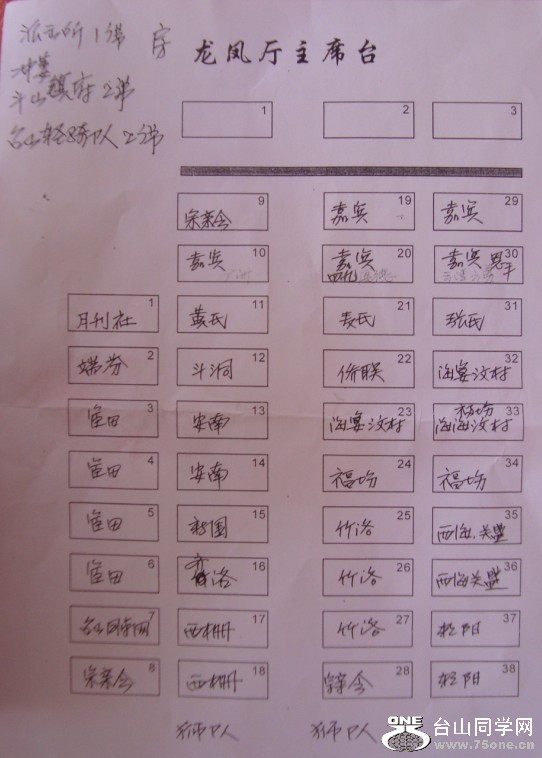 派出所1 席
龙凤厅主席台
冲蒌
斗山镇府2席
台山 人2席
1 2 3
9 宗亲会 19 嘉宾 29 嘉宾
10 嘉宾 20 嘉宾 30 嘉宾 恩平
1 月刊社 11 黄氏 21 麦氏 31 张氏
2 端芬 12 斗洞 22 侨联 32 海宴汶村
3 田 13 安南 23 海宴汶村 33 海宴汶村
4 田 14 安南 24 福场 34 福场
5 田 15 25 竹洛 35 西海
6 田 16 竹洛 26 竹洛 36 西海
7 台山同学网 17 西栅 27 竹洛 37 松阳
8 宗亲会 18 西栅 28 宗亲会 38 松阳
狮 人 狮 人
ONE 台山同学网
www.75one.cn